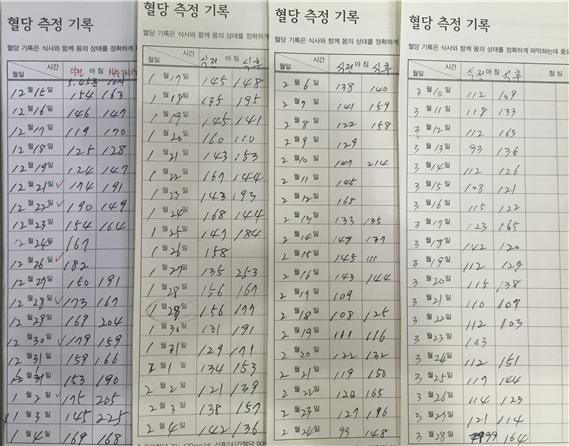 혈당 측정 기록
혈당 기록은 식사와 함께 몸의 상태를 정확하게
시간
월일
식전 아침
12월 14일 154 163
12월 16일 146 147
12월 17일 119 170
12월 18일 125 128
12월 19일 124 147
12월 21일 174 191
12월 22일 190 149
12월 23일 154 164
12월 24일 167
12월 26일 182
12월 27일 150 191
173 167
12월 28일 168 204
12월 30일 179 159
12월 31일 159 166
153 190
1월 2일 175 205
1월 3일 145 225
1월 4일 169 168
혈당 측정 기록
혈당 기록은 식사와 함께 몸의 상태를 정확하게
시간
월일
식전 아침 식후
1월 17일 145 148
1월 18일 135 195
1월 19일 145 141
1월 20일 160
1월 21일 143 153
1월 22일 167 144
1월 23일 143 193
1월 24일 168 144
1월 25일 147 184
1월 26일 158
1월 27일 135 253
1월 28일 156 167
1월 28일 156 177
1월 30일 131 191
1월 31일 129 171
1일 134 153
2월 2일 121 139
2월 3일 138 157
2월 4일 142 136
시간
월일
식전 아침 식후
2월 6일 138 140
2월 7일 141 159
2월 8일 122 158
2월 9일 129
2월 10일 147 214
2월 11일 145
2월 12일 165
2월 13일 133 135
2월 14일 137
2월 15일 145
2월 16일 143 144
2월 17일 109
2월 18일 108 125
2월 19일 116
2월 20일 122 132
2월 21일 119 150
2월 22일 165
2월 23일 127 196
2월 24일 99 148
혈당 측정 기록
혈당 기록은 식사와 함께 몸의 상태를 정확하게 파악하는데 중요
시간
월일
식전 아침 식후 점심
3월 10일 112 109
3월 11일 118 133
3월 12일 112 163
3월 13일 93 136
3월 14일 112 126
3월 15일 108 121
3월 16일 115 122
3월 17일 123 165
3월 18일 142 120
3월 19일 112
3월 20일 115 138
3월 21일 110 107
3월 22일 112 103
3월 23일 103
3월 24일 112 151
3월 25일 117 144
3월 26일 114 123
3월 27일 121 114
3월 28일 164